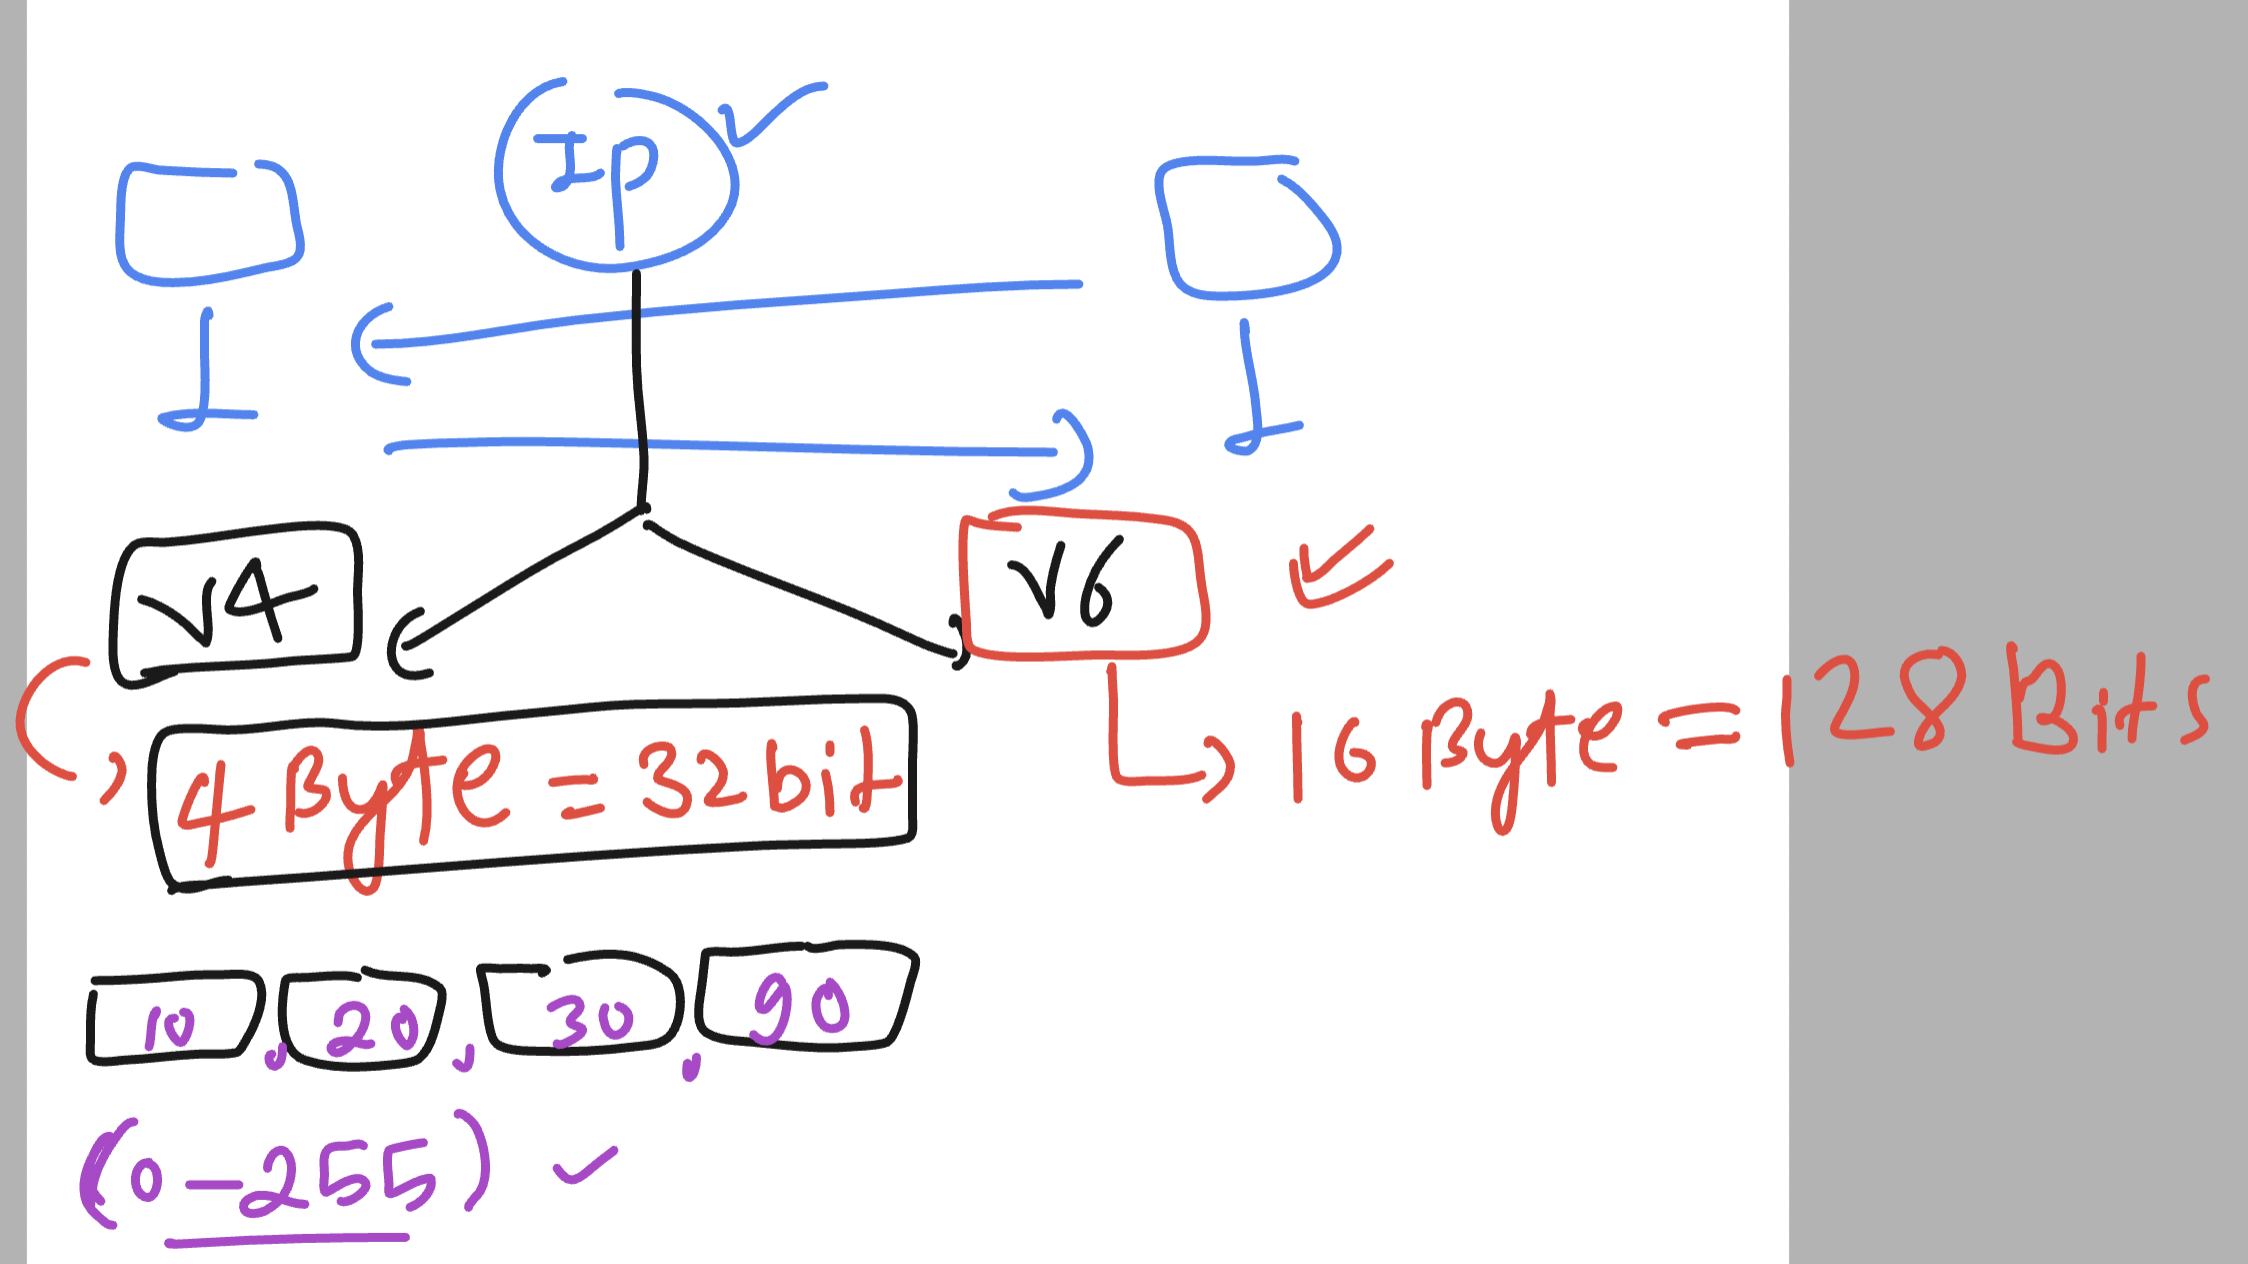 IP
V4
V6
4 Byte = 32 bit
16 Byte = 128 Bits
10 , 20 , 30 , 90
(0-255)